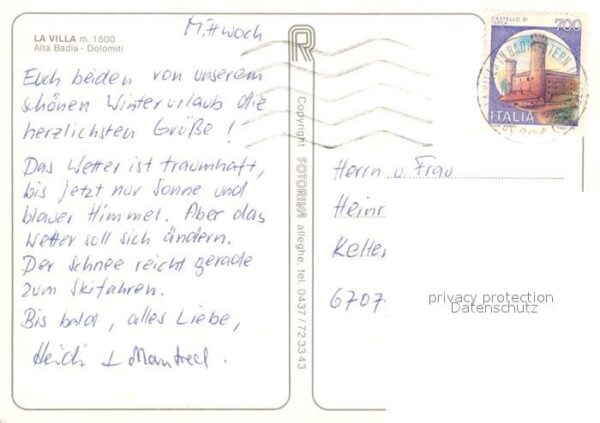 LA VILLA m. 1500
Alta Badia - Dolomiti
Mittwoch
Euch beiden von unserem
schönen Winterurlaub die
herzlichsten Größe!
Das Wetter ist traumhaft,
bis jetzt nur Sonne und
blauer Himmel. Aber das
Wetter soll sich ändern.
Der Schnee reicht gerade
zum Skifahren.
Bis bald, alles Liebe,
Heidi + Manfred.
R
Copyright FOTORIVA alleghe, tel. 0437/723343
CASTELLO DI
700
ITALIA
Herrn u. Frau
Heinr
Keller
6707
privacy protection
Datenschutz